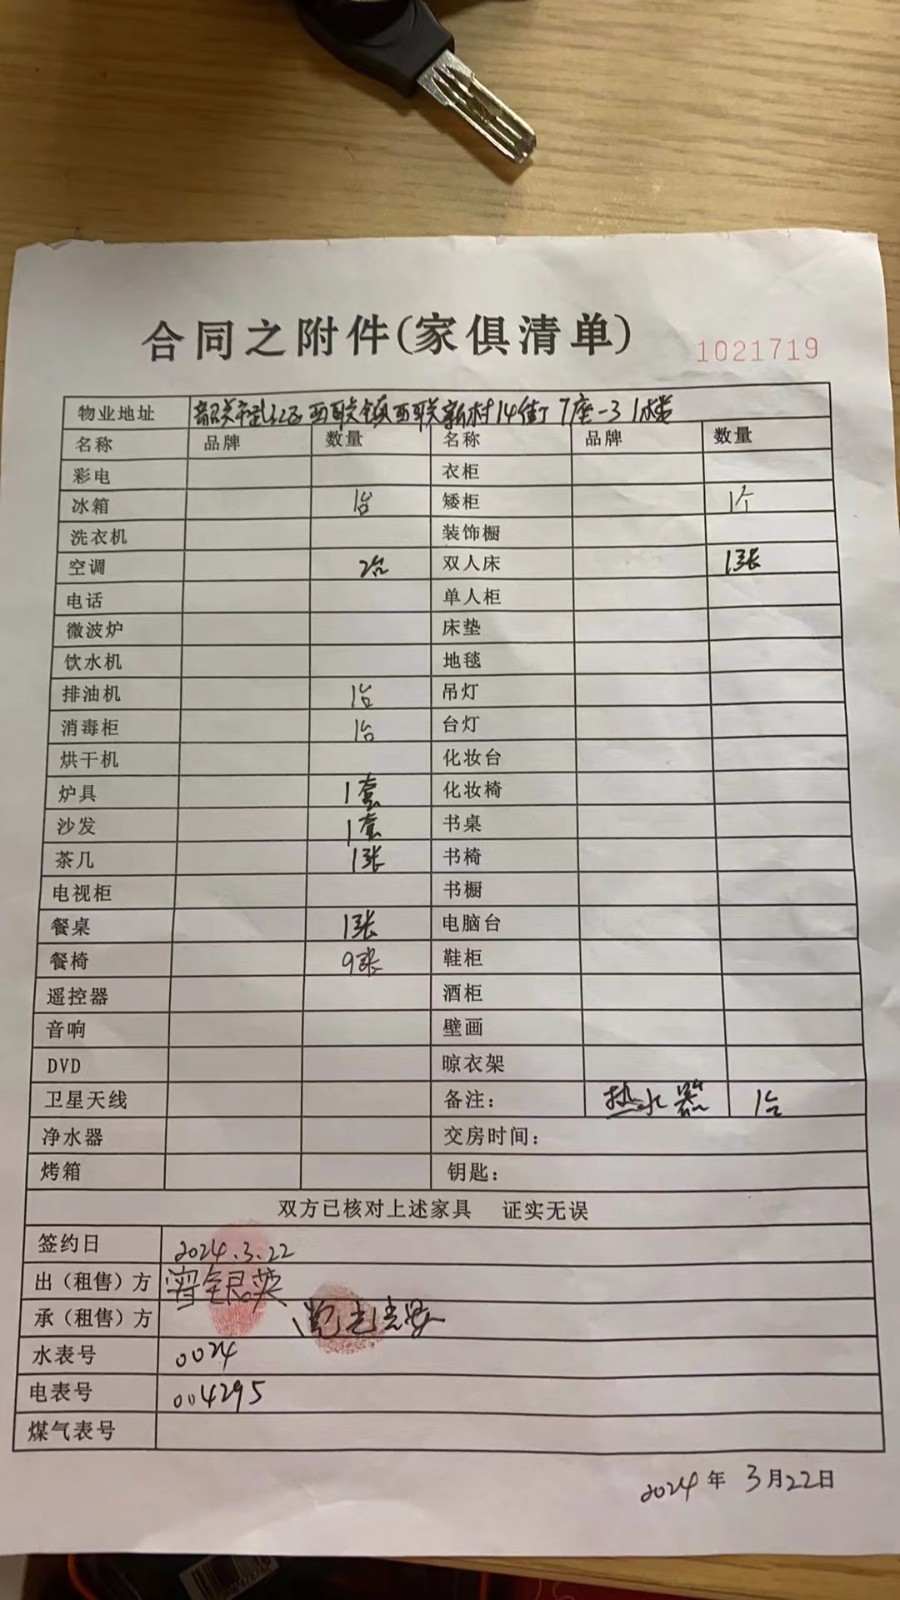 合同之附件(家俱清单)
1021719
物业地址 韶关市武江区西联镇西联新村14街7座-3 1楼
名称 品牌 数量 名称 品牌 数量
彩电 衣柜
冰箱 1台 矮柜 1个
洗衣机 装饰橱
空调 2台 双人床 1张
电话 单人柜
微波炉 床垫
饮水机 地毯
排油机 1台 吊灯
消毒柜 1台 台灯
烘干机 化妆台
炉具 1套 化妆椅
沙发 1套 书桌
茶几 1张 书椅
电视柜 书橱
餐桌 1张 电脑台
餐椅 9张 鞋柜
遥控器 酒柜
音响 壁画
DVD 晾衣架
卫星天线 备注: 热水器 1台
净水器 交房时间:
烤箱 钥匙:
双方已核对上述家具 证实无误
签约日 2024.3.22
出(租售)方 曾银英
承(租售)方
水表号 0024
电表号 004295
煤气表号
2024年3月22日